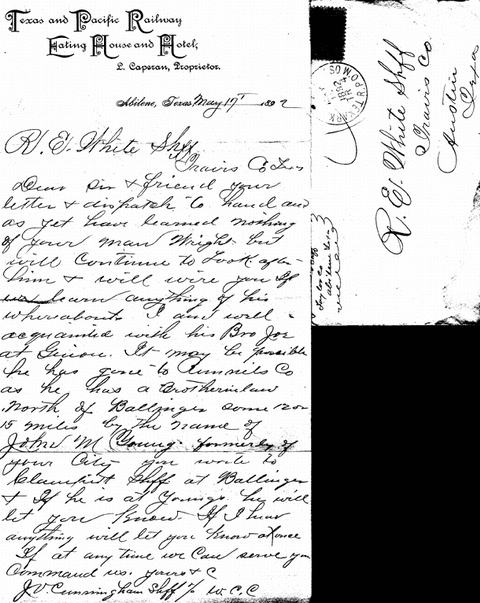 Texas and Pacific Railway
Eating House and Hotel,
L. Caperan, Proprietor.
Abilene, Texas, May 17th 1892
R. E. White Shff
Travis Co Tex
Dear Sir & friend your
letter & dispatch to hand and
as yet have learned nothing
of your man Wright but
will continue to Look after
him & will wire you If
learn anything of his
whereabouts I am well
acquainted with his Bro Joe
at Geison. It may be possible
he has gone to Runnels Co
as he has a Brotherinlaw
North of Ballinger some 12 or
15 miles by the name of
John M Young formerly of
your City you write to
Shff at Ballinger
& If he is at Youngs he will
let you know. If I hear
anything will let you know at once
If at any time we can serve you
Command us. yours & C
J V Cunningham Shff T. C.
R. E. White Shff
Travis Co.
Austin
Texas
Taylor Co
Abilene Tex